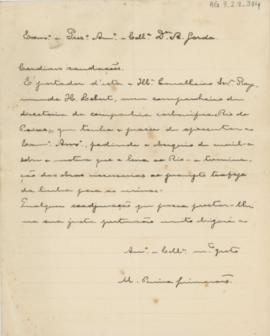 AG 3.2.2.304
Exmo. e Presº. Amº. e Collª. Dr. A. Gordo.
Cordiaes saudações.
É portador d'esta o Illº. Cavalheiro Snr. Ray-
mundo H. , meu companheiro de
directoria da companhia carbonifera Rio do
Peixe, que tenho o prazer de apresentar ao
Exmo. Amº., pedindo o obsequio de auxilial-o
sobre o motivo que o leva ao Rio - a termina-
ção das obras necessarias ao prompto trafego
da linha para as minas.
Qualquer coadjuvação que possa prestar-lhe
na sua justa pretenção muito obrigará ao
Amº. e Collª. mtº. grato
M. Guimarães